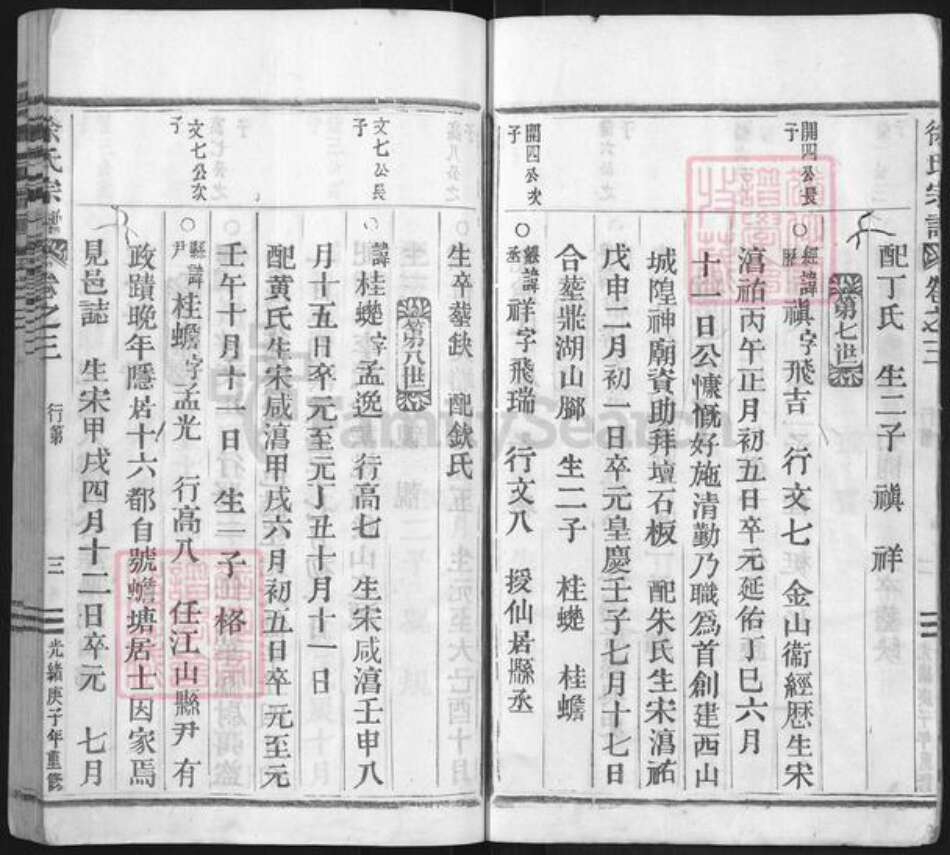 徐氏宗譜 卷之三
配丁氏 生二子 禛 祥
第七世
開四公長子
○經歷諱禛字飛吉 行文七 金山衞經歷生宋
淯祐丙午正月初五日卒元延佑丁巳六月
十一日公慷慨好施清勤乃職爲首創建西山
城隍神廟資助拜壇石板 配朱氏生宋淯祐
戊申二月初一日卒元皇慶壬子七月十七日
合塟鼎湖山腳 生二子 桂蟃 桂蟾
開四公次子
○縣丞諱祥字飛瑞 行文八 授仙居縣丞
生卒塟缺 配欽氏
第八世
文七公長子
○諱桂蟃字孟逸 行高七 生宋咸淯壬申八
月十五日卒元至元丁丑十月十一日
配黄氏生宋咸淯甲戌六月初五日卒元至元
壬午十月十一日 生一子 格
文七公次子
○縣尹諱桂蟾字孟光 行高八 任江山縣尹 有
政蹟晚年隱居十六都自號蟾塘居士因家焉
見邑誌 生宋甲戌四月十二日卒元 七月
徐氏宗譜 卷之三 行第 三 光緒庚子年重修
FamilySearch